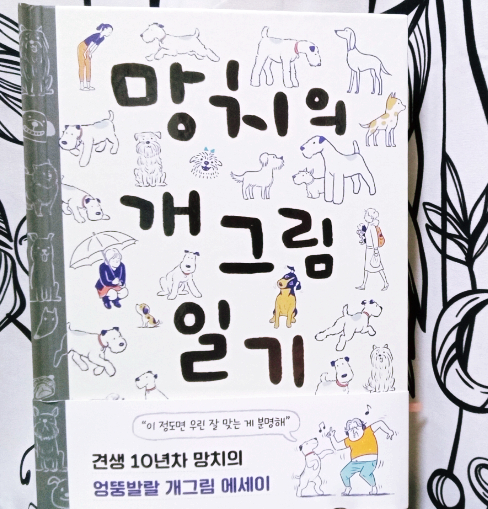 망치의
개그림
일기
"이 정도면 우린 잘 맞는 게 분명해"
견생 10년차 망치의
엉뚱발랄 개그림 에세이